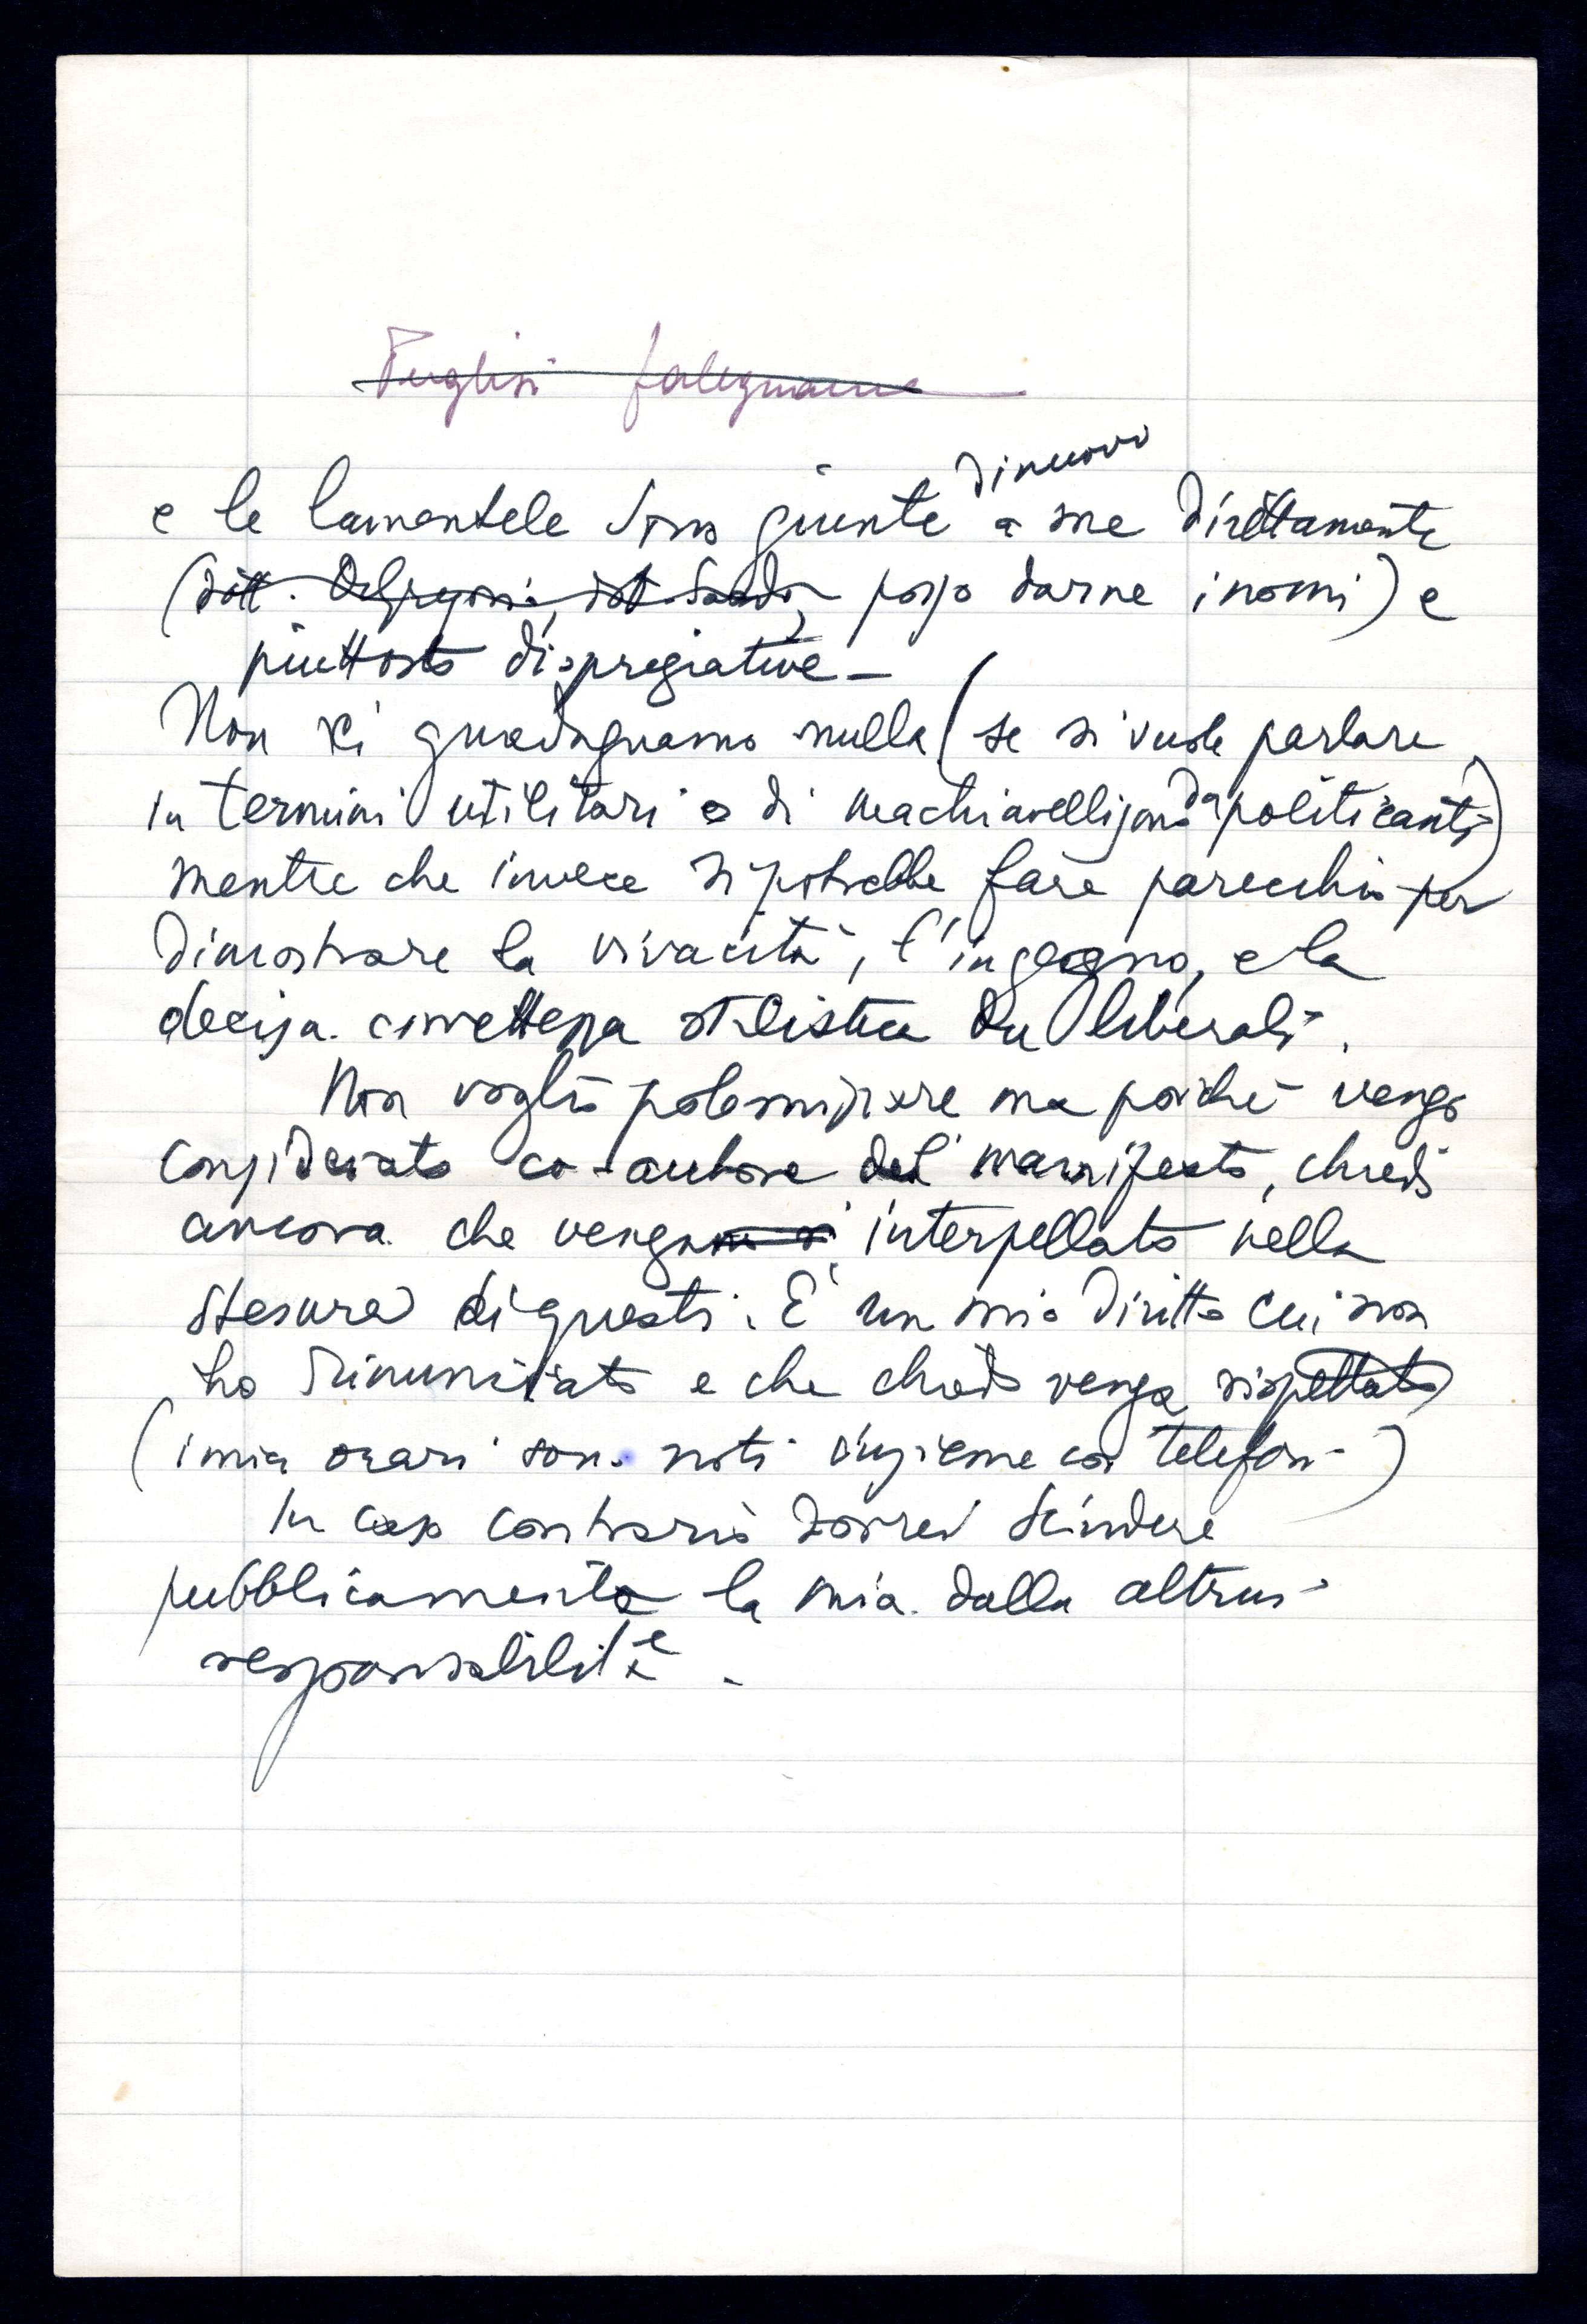 Puglisi falegname
di nuovo
e le lamentele sono giunte a me direttamente
(dott. dott. posso darne i nomi) e
piuttosto dispregiative -
Non ci guadagnamo nulla (se si vuole parlare
in termini utilitari o di machiavellismo da politicanti)
mentre che invece si potrebbe fare parecchio per
dimostrare la vivacità, l'ingegno, e la
decisa correttezza stilistica dei liberali.
Non voglio polemizzare ma poichè vengo
considerato co-autore del manifesto, chiedo
ancora che venga interpellato nella
stesura di questi. E' un mio diritto cui non
ho rinunciato e che chiedo venga rispettato
(i miei orari sono noti insieme coi telefoni)
In caso contrario dovrei scindere
pubblicamente la mia dalla altrui
responsabilità.